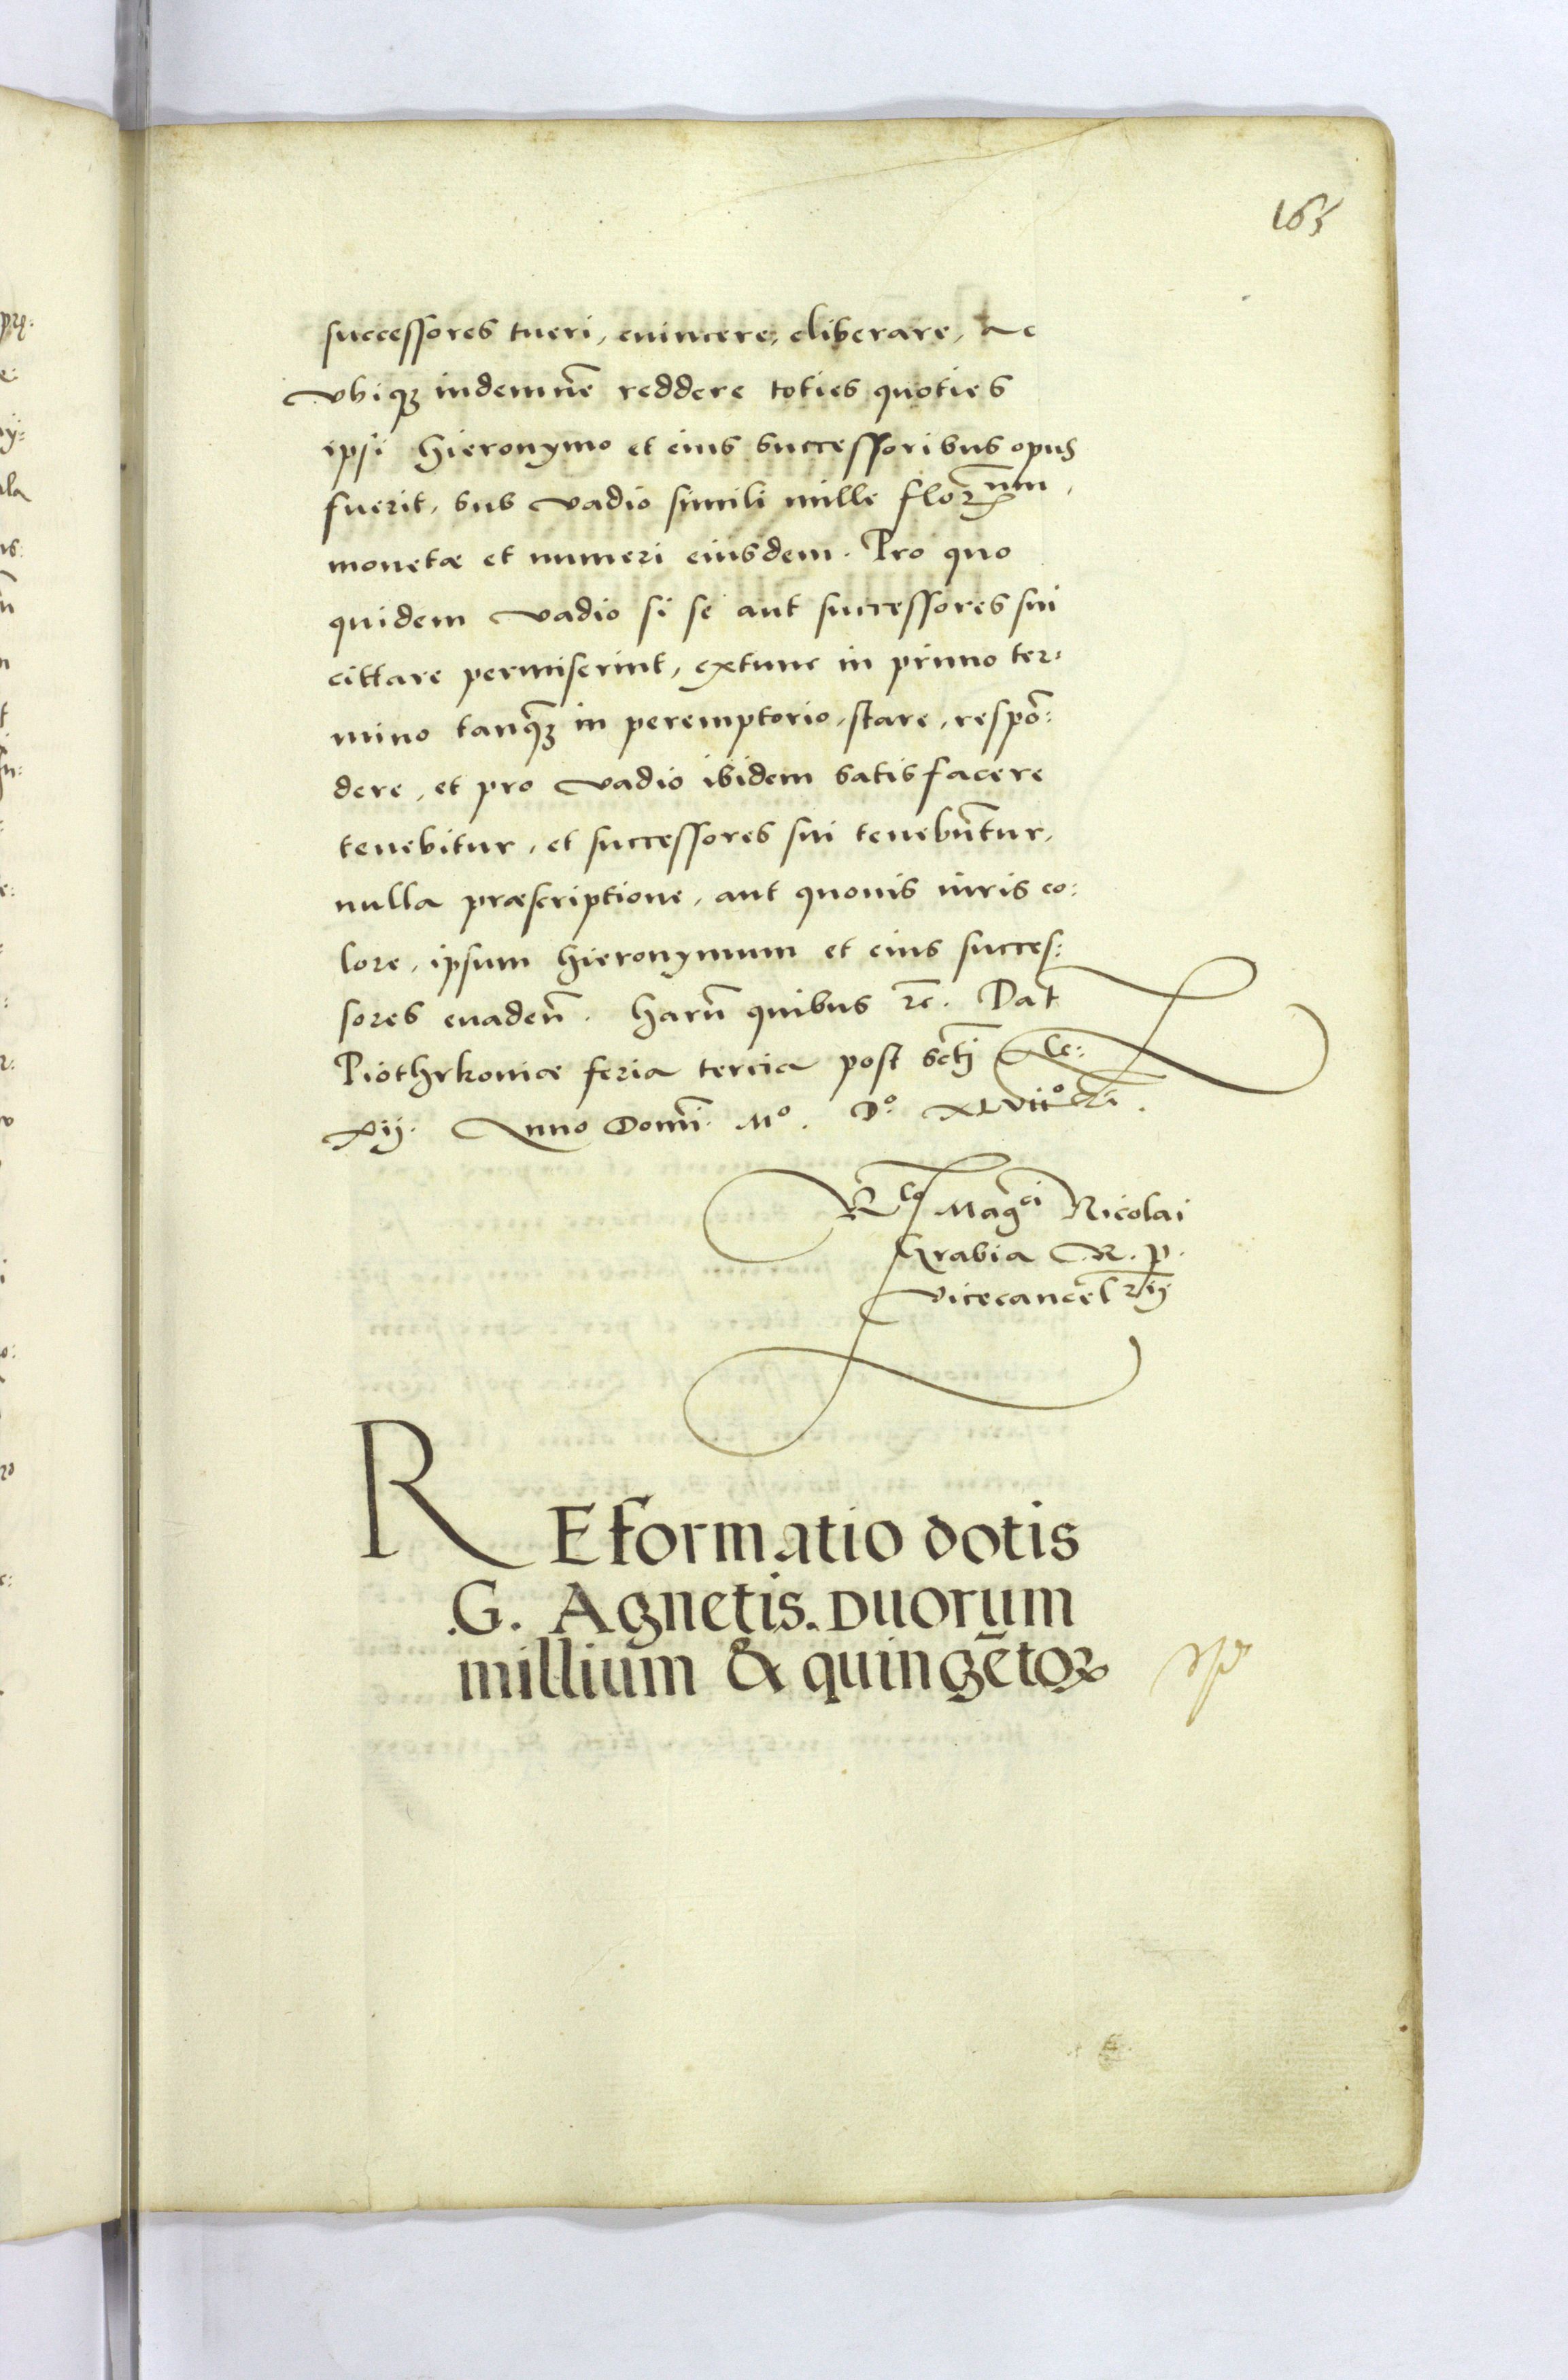 163
successores tueri, euincere, eliberare, ac
vbiqꝫ indemnē reddere toties quoties
ipsi Hieronymo et eius successoribus opus
fuerit, sub vadio simili mille florꝝ num,
monetæ et numeri eiusdem. Pro quo
quidem vadio si se aut successores sui
cittare permiserint, extunc in primo ter:
mino tanqꝫ in peremptorio, stare, respō:
dere, et pro vadio ibidem satisfacere
tenebitur, et successores sui tenebūtur,
nulla præscriptione, aut quouis iuris co:
lore, ipsum Hieronymum et eius succes:
sores euadeñ. Harū quibus rc̄. Dat
Piothrkoniæ feria tercia post Scti Ale:
xij. Anno Domī. Mº. Dº. XLviiº.
Rlo Magci Nicolai
Grabia R. P.
Vicecancellrij
REformatio dotis
.G. Agnetis. Duorum
millium & quingētoꝝ